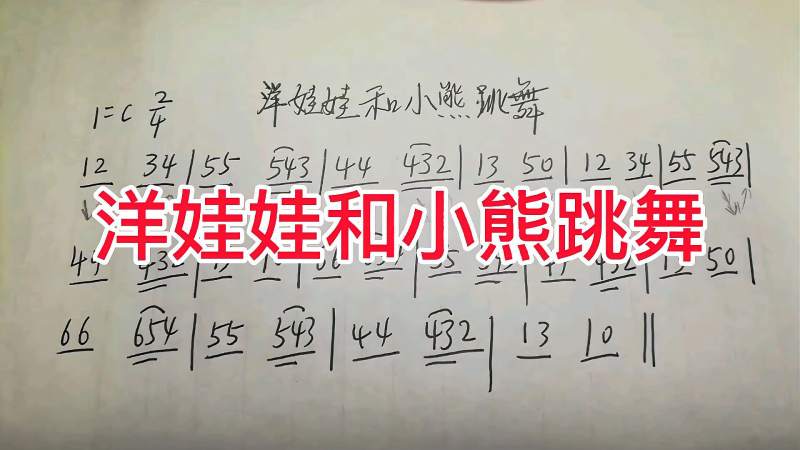 1=C 2/4 洋娃娃和小熊跳舞
12 34 | 55 543 | 44 432 | 13 50 | 12 34 | 55 543 |
洋娃娃和小熊跳舞
44 432 | 66 | 432 | 13 50 |
66 654 | 55 543 | 44 432 | 13 10 ||